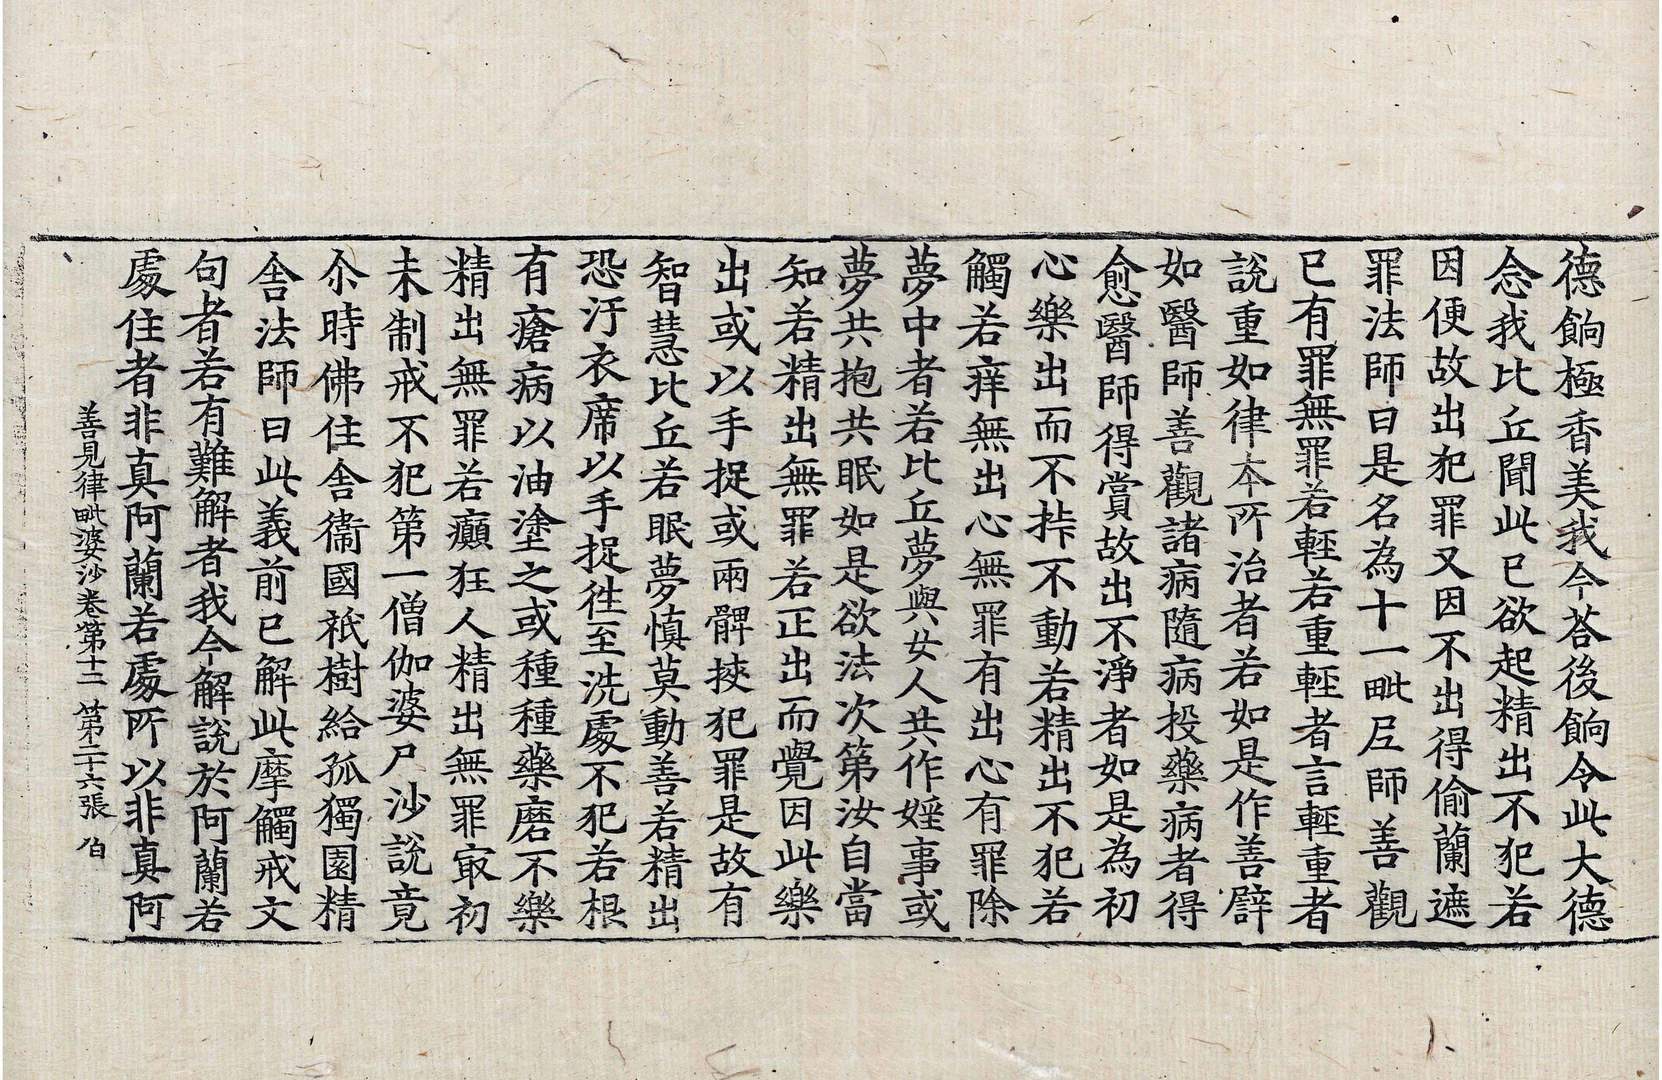 德餉極香美我今荅後餉令此大德
念我比丘聞此已欲起精出不犯若
因便故出犯罪又因不出得偷蘭遮
罪法師曰是名為十一毗𡰱師善觀
已有罪無罪若輕若重輕者言輕重者
說重如律本所治者若如是作善譬
如醫師善觀諸病隨病投藥病者得
愈醫師得賞故出不淨者如是為初
心樂出而不挊不動若精出不犯若
觸若痒無出心無罪有出心有罪除
夢中者若比丘夢與女人共作婬事或
夢共抱共眠如是欲法次第汝自當
知若精出無罪若正出而覺因此樂
出或以手捉或兩髀挾犯罪是故有
智慧比丘若眠夢慎莫動善若精出
恐汙衣席以手捉徃至洗處不犯若根
有瘡病以油塗之或種種藥磨不樂
精出無罪若癲狂人精出無罪㝡初
未制戒不犯第一僧伽婆尸沙說竟
尒時佛住舍衞國祇樹給孤獨園精
舍法師曰此義前已解此摩觸戒文
句者若有難解者我今解說於阿蘭若
處住者非真阿蘭若處所以非真阿
善見律毗婆沙卷第十二 第二十六張 伯